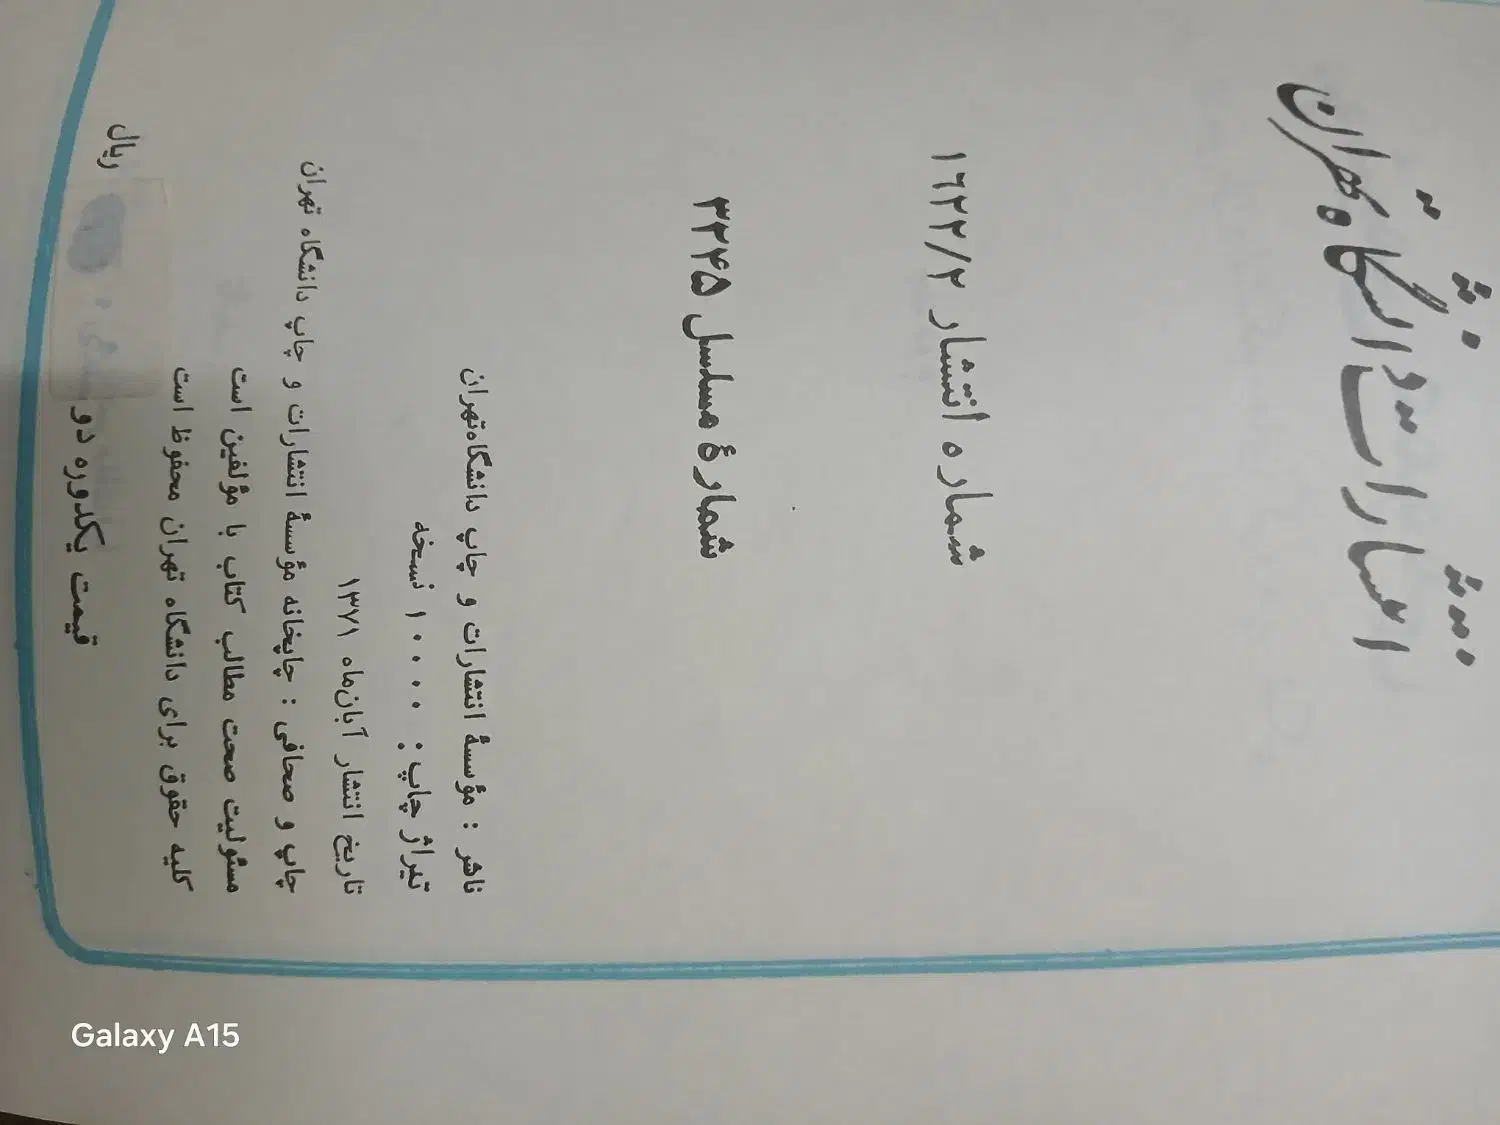 انتشارات دانشگاه تهران
شماره انتشار ۱۶۲۲/۲
شمارهٔ مسلسل ۳۳۴۵
ناشر : مؤسسهٔ انتشارات و چاپ دانشگاه تهران
تیراژ چاپ : ۱۰۰۰۰ نسخه
تاریخ انتشار آبان‌ماه ۱۳۷۱
چاپ و صحافی : چاپخانه مؤسسهٔ انتشارات و چاپ دانشگاه تهران
مسئولیت صحت مطالب کتاب با مؤلفین است
کلیه حقوق برای دانشگاه تهران محفوظ است
قیمت یکدوره دو ریال
Galaxy A15